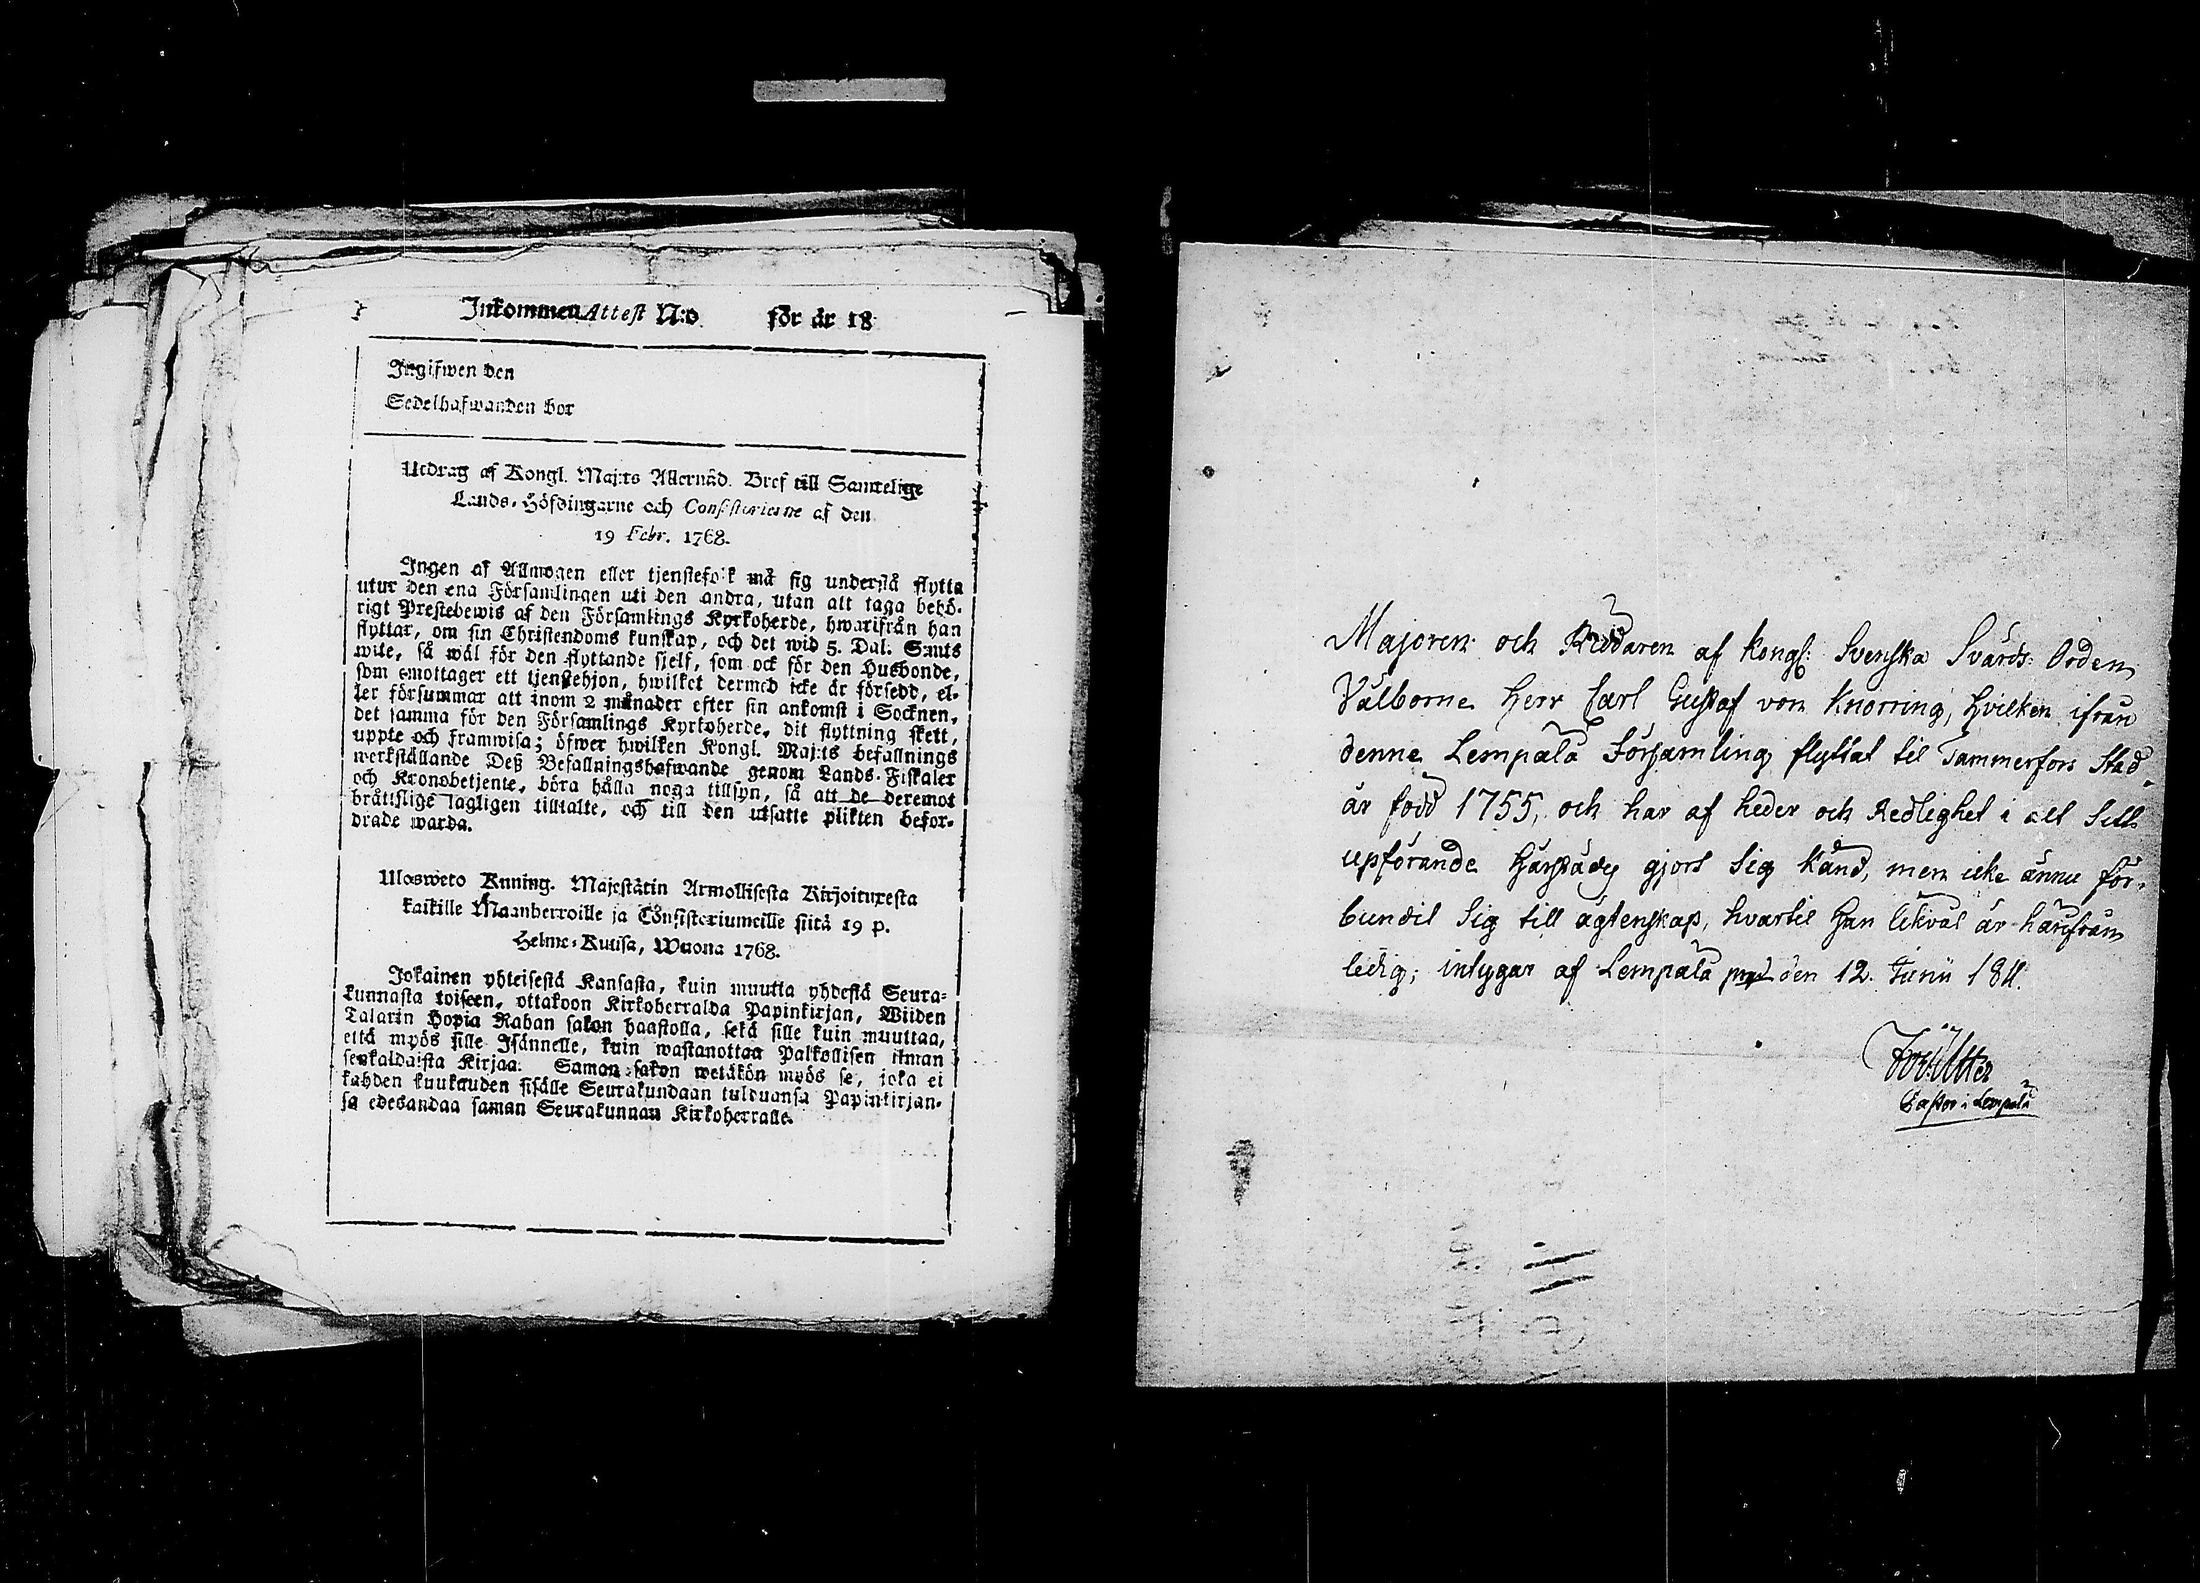 Inkommen Attest N:o för år 18
Ingifwen den
Sedelhafwanden bor
Utdrag af Kongl. Maj:ts Allernåd. Bref till Samtelige
Lands-Höfdingarne och Consistorierne af den
19 Febr. 1768.
Ingen af Allmogen eller tjenstefolk må sig understå flytta
utur den ena Församlingen uti den andra, utan att taga behö-
rigt Prestebewis af den Församlings Kyrkoherde, hwarifrån han
flyttar, om sin Christendoms kunskap, och det wid 5. Dal. Smts
wite, så wäl för den flyttande sjelf, som ock för den Husbonde,
som emottager ett tjenstehjon, hwilket dermed icke är försedd, el-
ler försummar att inom 2 månader efter sin ankomst i Socknen,
det samma för den Församlings Kyrkoherde, dit flyttning skett,
uppte och framwisa; öfwer hwilken Kongl. Maj:ts befallnings
werkställande Deß Befallningshafwande genom Lands-Fiskaler
och Kronobetjente, böra hålla noga tillsyn, så att de deremot
bråttslige lagligen tilltalte, och till den utsatte plikten befor-
drade warda.
Ulosweto Kuning. Majestätin Armollisesta Kirjoituxesta
kaikille Maanherroille ja Consistoriumeille siitä 19 p.
Helme-Kuusa, Wuona 1768.
Jokainen yhteisestä Kansasta, kuin muutta yhdestä Seura-
kunnasta toiseen, ottakoon Kirkoherralda Papinkirjan, Wiiden
Talarin Hopia Rahan sakon haastolla, sekä sille kuin muuttaa,
että myös sille Isännelle, kuin wastanottaa Palkollisen ilman
senkaldaista Kirjaa. Saman sakon wetäkön myös se, joka ei
kahden kuukauden sisälle Seurakundaan tulduansa Papinkirjan-
sa edesandaa saman Seurakunnan Kirkoherralle.
Majoren och Riddaren af Kongl: Svenska Svärds-Orden
Välborne Herr Carl Gustaf von Knorring, hvilken ifrån
denne Lempälä Församling flyttat til Tammerfors Stad,
är född 1755, och har af heder och Redlighet i alt Sitt
upförande härstädes gjort Sig känd, men icke ännu för-
bundit Sig till ägtenskap, hvartil Han likväl är härifrån
ledig; intygar af Lempälä den 12. Junii 1811.
Pastor i Lempälä